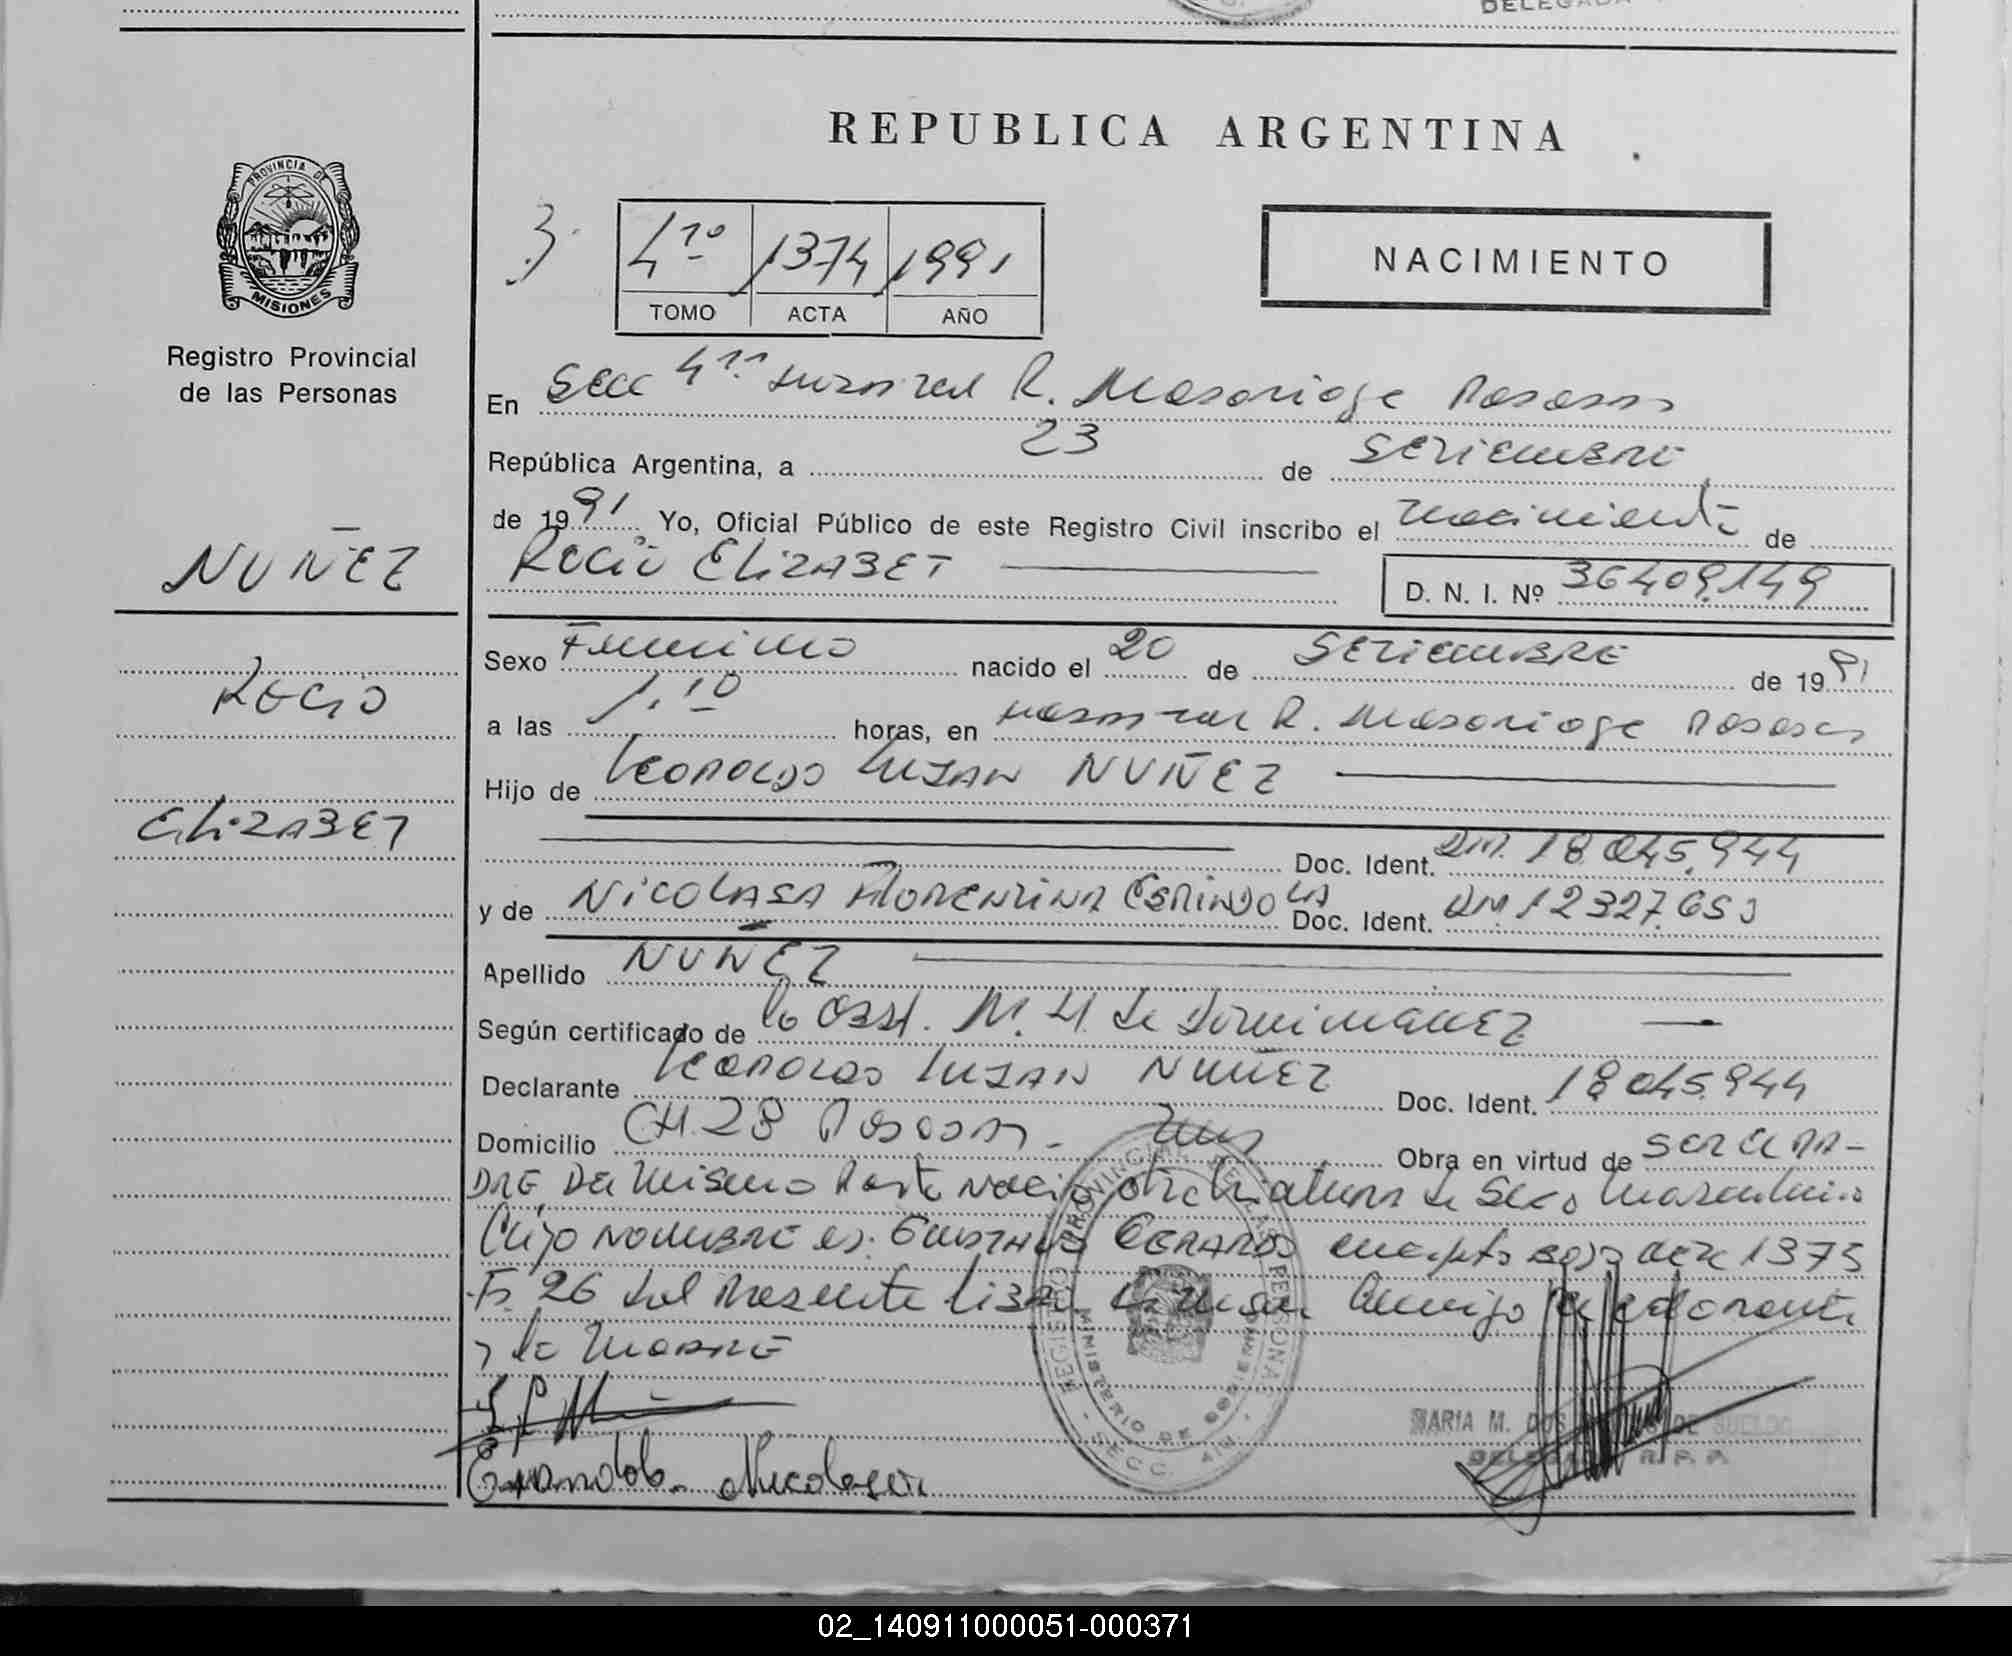 REPUBLICA ARGENTINA
PROVINCIA DE
MISIONES
Registro Provincial
de las Personas
4to 1374 1991
TOMO ACTA AÑO
NACIMIENTO
En Secc 4ta Hospital R. Madariaga Posadas
República Argentina, a 23 de SETIEMBRE
de 1991 Yo, Oficial Público de este Registro Civil inscribo el nacimiento de
ROCIO ELIZABET D. N. I. Nº 36409.149
NUÑEZ
ROCIO
ELIZABET
Sexo Femenino nacido el 20 de SETIEMBRE de 1991
a las 1.10 horas, en Hospital R. Madariaga Posadas
Hijo de Leopoldo LUJAN NUÑEZ
Doc. Ident. DNI. 18.045.944
y de NICOLASA FLORENTINA ESPINDOLA Doc. Ident. DNI 12327.653
Apellido NUÑEZ
Según certificado de la Obst. M. H. de Dominguez
Declarante Leopoldo LUJAN NUÑEZ Doc. Ident. 18.045.944
Domicilio CH. 28 Posadas - Mnes Obra en virtud de SER EL PA-
DRE Del Mismo Parto Nació otra criatura de Sexo Masculino
Cuyo NOMBRE es: GUSTAVO GERARDO bajo acta 1375
Fs. 26 del Presente Libro Conmigo el declarante
y la MADRE
Nicolasa
REGISTRO PROVINCIAL DE LAS PERSONAS
MINISTERIO DE GOBIERNO
SECC. 4TA.
MARIA M. DOS DE SUELDO
DELEGADA R. P. P.
02_140911000051-000371